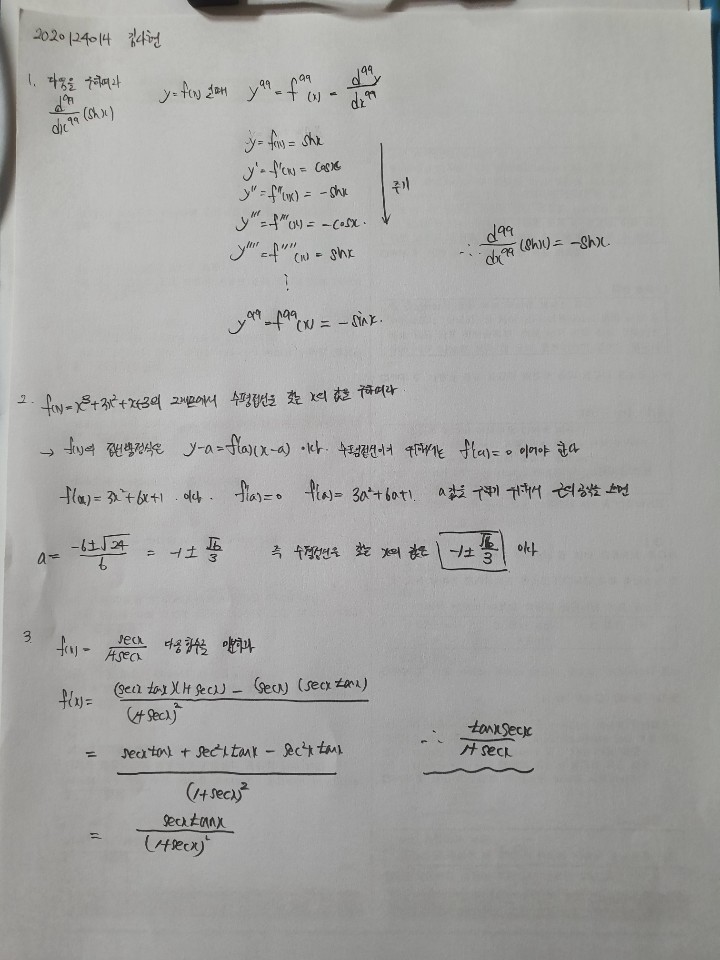 2020124014 김나현
1. 다음을 구하여라 y=f(x) 일때 y⁹⁹ = f⁹⁹(x) = d⁹⁹y/dx⁹⁹
d⁹⁹/dx⁹⁹ (sinx)
y = f(x) = sinx
y' = f'(x) = cosx
y'' = f''(x) = -sinx
y''' = f'''(x) = -cosx.
주기
y'''' = f''''(x) = sinx
∴ d⁹⁹/dx⁹⁹ (sinx) = -sinx.
⋮
y⁹⁹ = f⁹⁹(x) = -sinx.
2. f(x) = x³+3x²+x+3의 그래프에서 수평접선을 갖는 x의 값을 구하여라
→ f(x)의 접선방정식은 y-a = f'(a)(x-a) 이다. 수평접선이기 위해서는 f'(a)=0 이어야 한다
f'(x) = 3x²+6x+1 . 이다. f'(a)=0 f'(a) = 3a²+6a+1. a값을 구하기 위해서 근의 공식을 쓰면
a = (-6±√24)/6 = -1 ± √6/3 즉 수평접선을 갖는 x의 값은 -1± √6/3 이다
3. f(x) = secx/(1+secx) 다음 함수를 미분하라
f'(x) = ((secx tanx)(1+secx) - (secx)(secx tanx))/(1+secx)²
= (secx tanx + sec²x tanx - sec²x tanx)/(1+secx)²
∴ tanxsecx/(1+secx)
= secxtanx/(1+secx)²